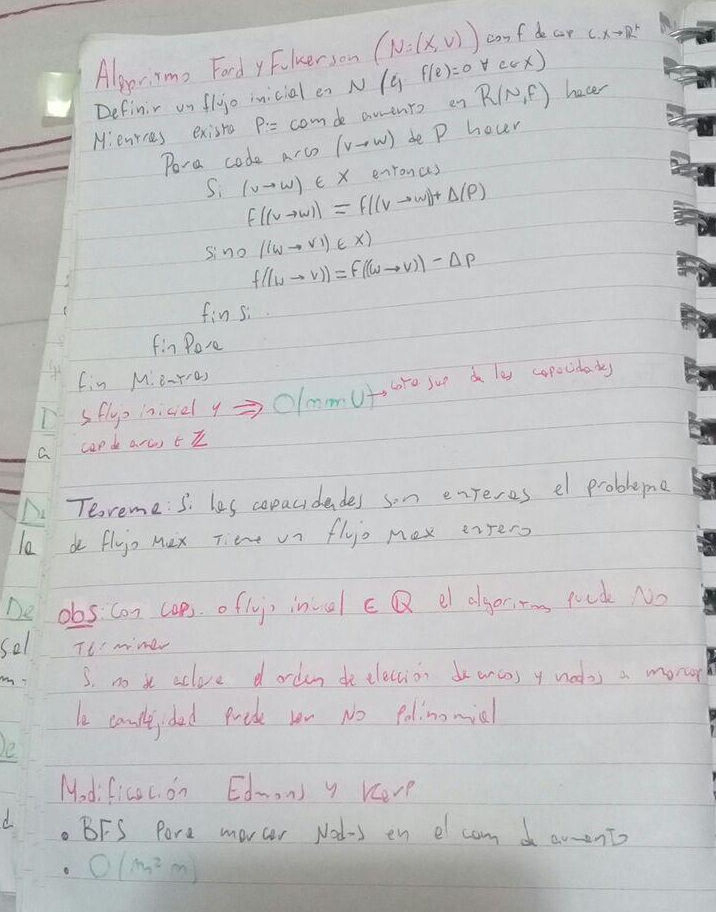 Algoritmo Ford y Fulkerson (N=(X,V)) con f de cap c:X→R⁺
Definir un flujo inicial en N (ej f(e)=0 ∀ e∈X)
Mientras exista P:= cam de aumento en R(N,f) hacer
Para cada arco (v→w) de P hacer
Si (v→w) ∈ X entonces
f((v→w)) = f((v→w))+ Δ(P)
sino ((w→v)) ∈ X)
f((w→v)) = f((w→v)) - ΔP
fin Si
fin Para
fin Mientras
D
S flujo inicial y ⇒ O(nmU) → cota sup de las capacidades
a
cap de arcos ∈ Z
De
Teorema: Si las capacidades son enteras el problema
la
de flujo Max tiene un flujo Max entero
De
obs: con caps. o flujo inicial ∈ Q el algoritmo puede No
sal
Terminar
m-
Si no se aclara el orden de elección de arcos y nodos a marcar
la complejidad puede ser No Polinomial
De
Modificación Edmons y Karp
d
• BFS Para marcar Nodos en el cam de aumento
• O(m² n)